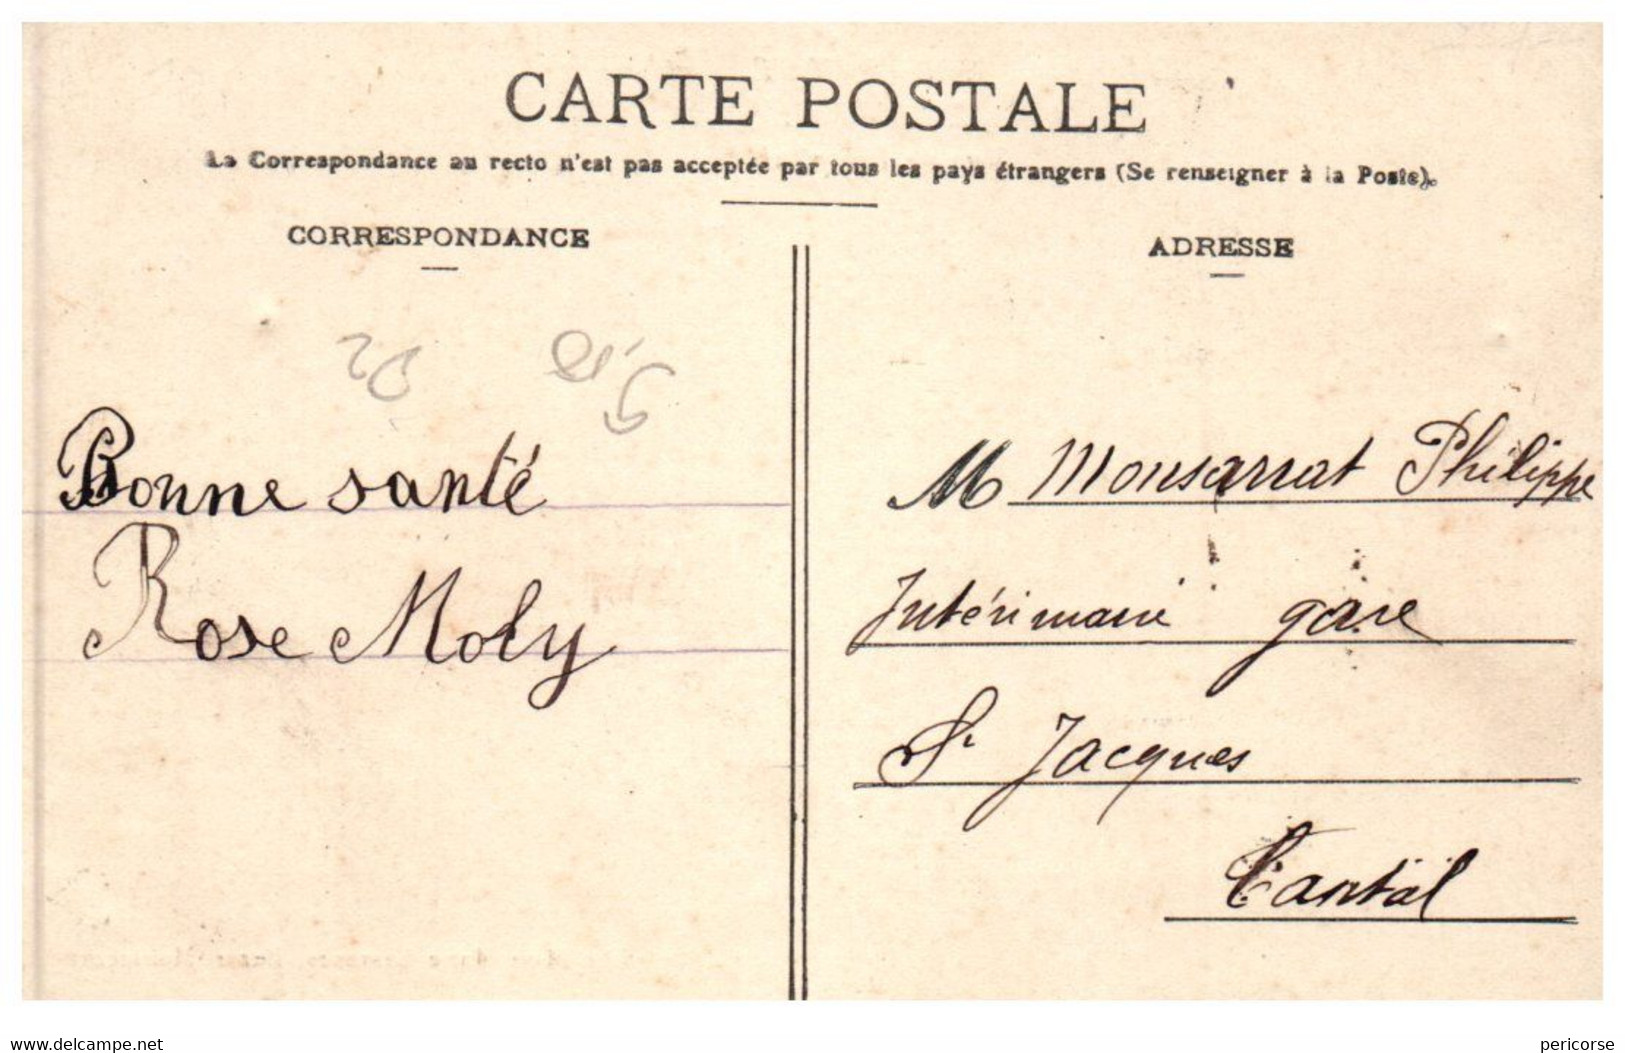 CARTE POSTALE
La Correspondance au recto n'est pas acceptée par tous les pays étrangers (Se renseigner à la Poste).
CORRESPONDANCE
Bonne santé
Rose Moly
ADRESSE
M Monsarrat Philippe
Intérimaire gare
St Jacques
Cantal
www.delcampe.net
pericorse